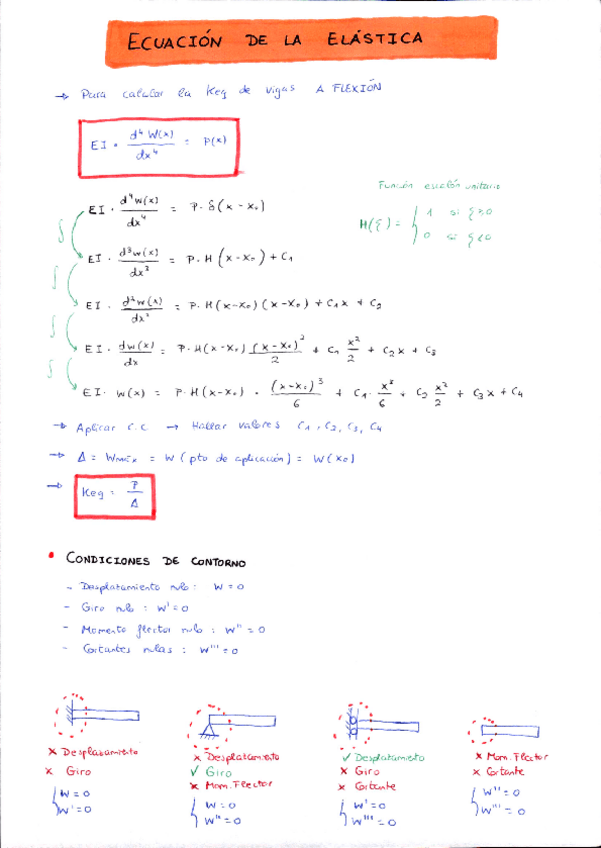 ECUACIÓN DE LA ELÁSTICA
→ Para calcular la Keq de vigas A FLEXIÓN
EI · d⁴W(x)/dx⁴ = P(x)
Función escalón unitario
H(ξ) = { 1 si ξ≥0
0 si ξ<0
EI · d⁴w(x)/dx⁴ = P · δ(x - x₀)
∫ EI · d³w(x)/dx³ = P · H(x-x₀) + C₁
∫ EI · d²w(x)/dx² = P · H(x-x₀)(x-x₀) + C₁x + C₂
∫ EI · dw(x)/dx = P · H(x-x₀) (x-x₀)²/2 + C₁ x²/2 + C₂x + C₃
∫ EI · w(x) = P · H(x-x₀) · (x-x₀)³/6 + C₁ · x³/6 + C₂ x²/2 + C₃x + C₄
→ Aplicar C.C → Hallar valores C₁, C₂, C₃, C₄
→ Δ = Wmáx = W(pto de aplicación) = W(x₀)
→ Keq = P/Δ
• CONDICIONES DE CONTORNO
- Desplazamiento nulo : W = 0
- Giro nulo : W' = 0
- Momento flector nulo : W'' = 0
- Cortantes nulas : W''' = 0
x Desplazamiento
x Giro
{ W = 0
W' = 0
x Desplazamiento
✓ Giro
x Mom. Flector
{ W = 0
W'' = 0
✓ Desplazamiento
x Giro
x Cortante
{ W' = 0
W''' = 0
x Mom. Flector
x Cortante
{ W'' = 0
W''' = 0